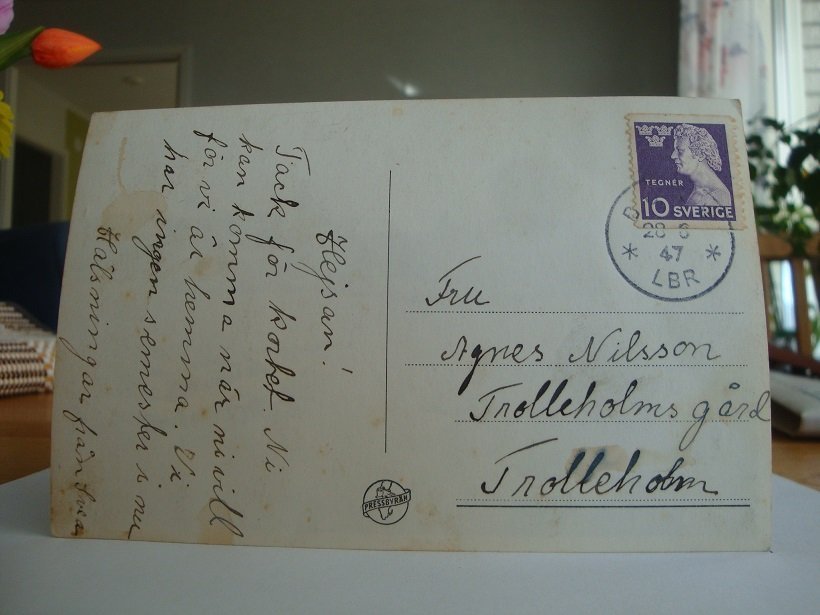 Hejsan!
Tack för kortet. Ni
kan komma när ni vill
för vi är hemma. Vi
har ingen semester i nu
Hälsningar från Svea
TEGNÉR
10 SVERIGE
28 6
47
LBR
Fru
Agnes Nilsson
Trolleholms gård
Trolleholm
PRESSBYRÅN